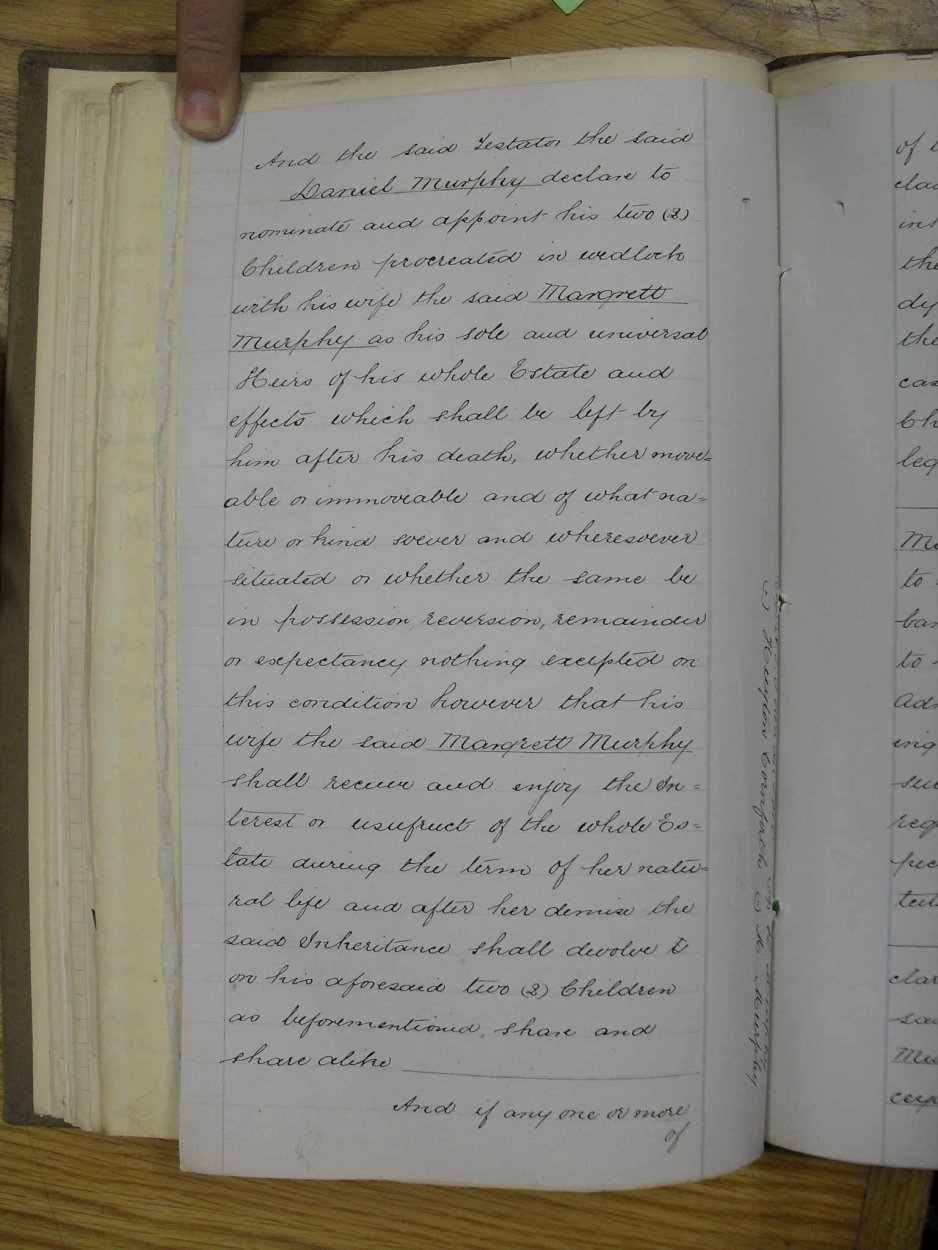 And the said Testator the said
Daniel Murphy declare to
nominate and appoint his two (2)
Children procreated in wedlock
with his wife the said Margrett
Murphy as his sole and universal
Heirs of his whole Estate and
effects which shall be left by
him after his death, whether move=
able or immoveable and of what na=
ture or kind soever and wheresoever
situated or whether the same be
in possession, reversion, remainder
or expectancy nothing excepted on
this condition however that his
wife the said Margrett Murphy
shall receive and enjoy the In=
terest or usufruct of the whole Es=
tate during the term of her natu=
ral life and after her demise the
said Inheritance shall devolve
on his aforesaid two (2) Children
as beforementioned, share and
share alike
And if any one or more
of
of
the
the
Ch
leg
to
to